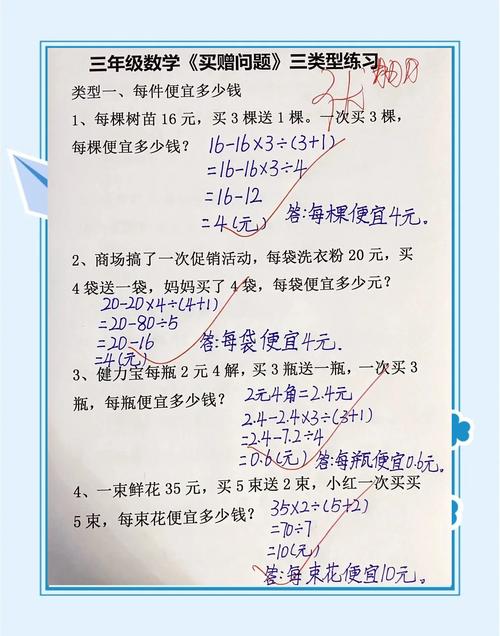 三年级数学《买赠问题》三类型练习
类型一、每件便宜多少钱
1、每棵树苗16元，买3棵送1棵。一次买3棵，
每棵便宜多少钱？ 16-16×3÷(3+1)
=16-16×3÷4
=16-12
=4(元) 答:每棵便宜4元。
2、商场搞了一次促销活动，每袋洗衣粉20元，买
4袋送一袋，妈妈买了4袋，每袋便宜多少元？
20-20×4÷(4+1)
=20-80÷5
=20-16
=4(元) 答:每袋便宜4元.
3、健力宝每瓶2元4解，买3瓶送一瓶，一次买3
瓶，每瓶便宜多少钱？ 2元4角=2.4元
2.4-2.4×3÷(3+1)
=2.4-7.2÷4
=0.6(元) 答:每瓶便宜0.6元.
4、一束鲜花35元，买5束送2束，小红一次买买
5束，每束花便宜多少钱？ 35×2÷(5+2)
=70÷7
=10(元)
答:每束花便宜10元.